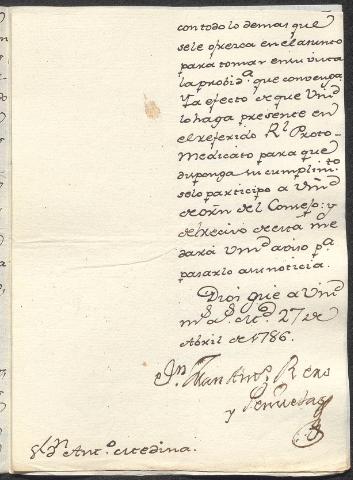 con todo lo demas que
sele ofrezca en el asunto
para tomar en su vista
la probid.ª que convenga.
Y a efecto de que Vmd
lo haga presente en
el referido Rl Proto-
Medicato para que
disponga su cumplim.to
selo participo a Vmd
de orn del Consejo: y
del recivo de esta me
dará Vmd aviso p.ª
pasarlo a su noticia.
Dios gūe a Vmd
m.s a.s 27 de
Abril de 1786.
Dn Juan Antº Rero
y Peñuelas
Sr Dn Antº Medina.